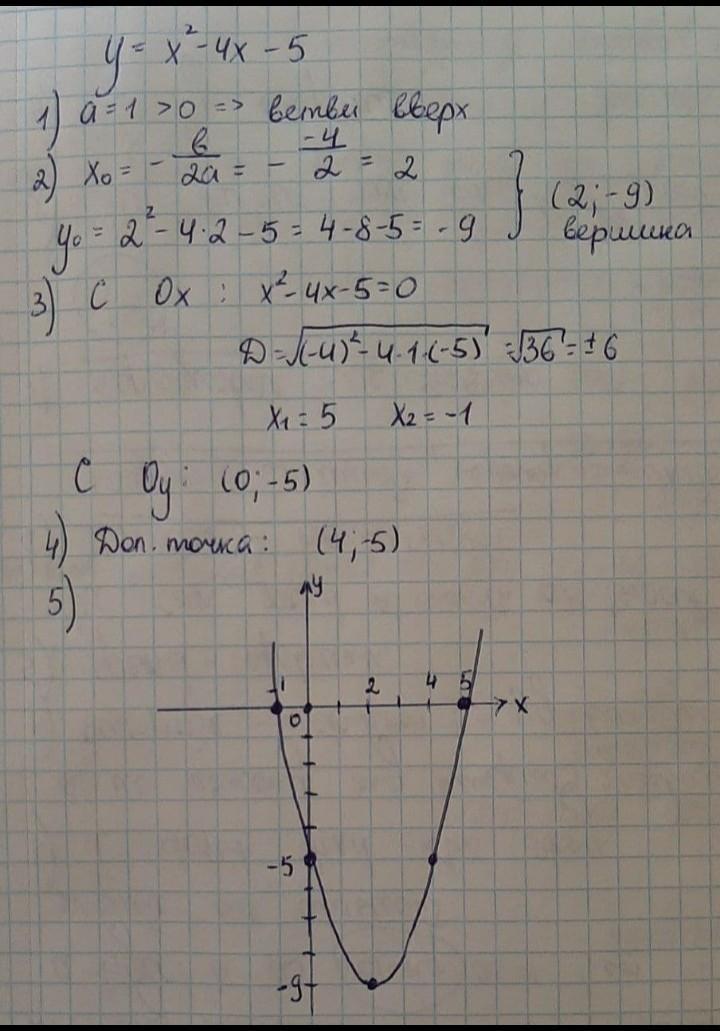 y = x² - 4x - 5
1) a = 1 > 0 => ветви вверх
2) x₀ = - в/2a = - -4/2 = 2
y₀ = 2² - 4·2 - 5 = 4 - 8 - 5 = -9 } (2; -9) вершина
3) С Ox : x² - 4x - 5 = 0
D = √((-4)² - 4·1·(-5)) = √36 = ±6
x₁ = 5 x₂ = -1
С Oy: (0; -5)
4) Доп. точка: (4; -5)
5)
y
-1 2 4 5
0 x
-5
-9